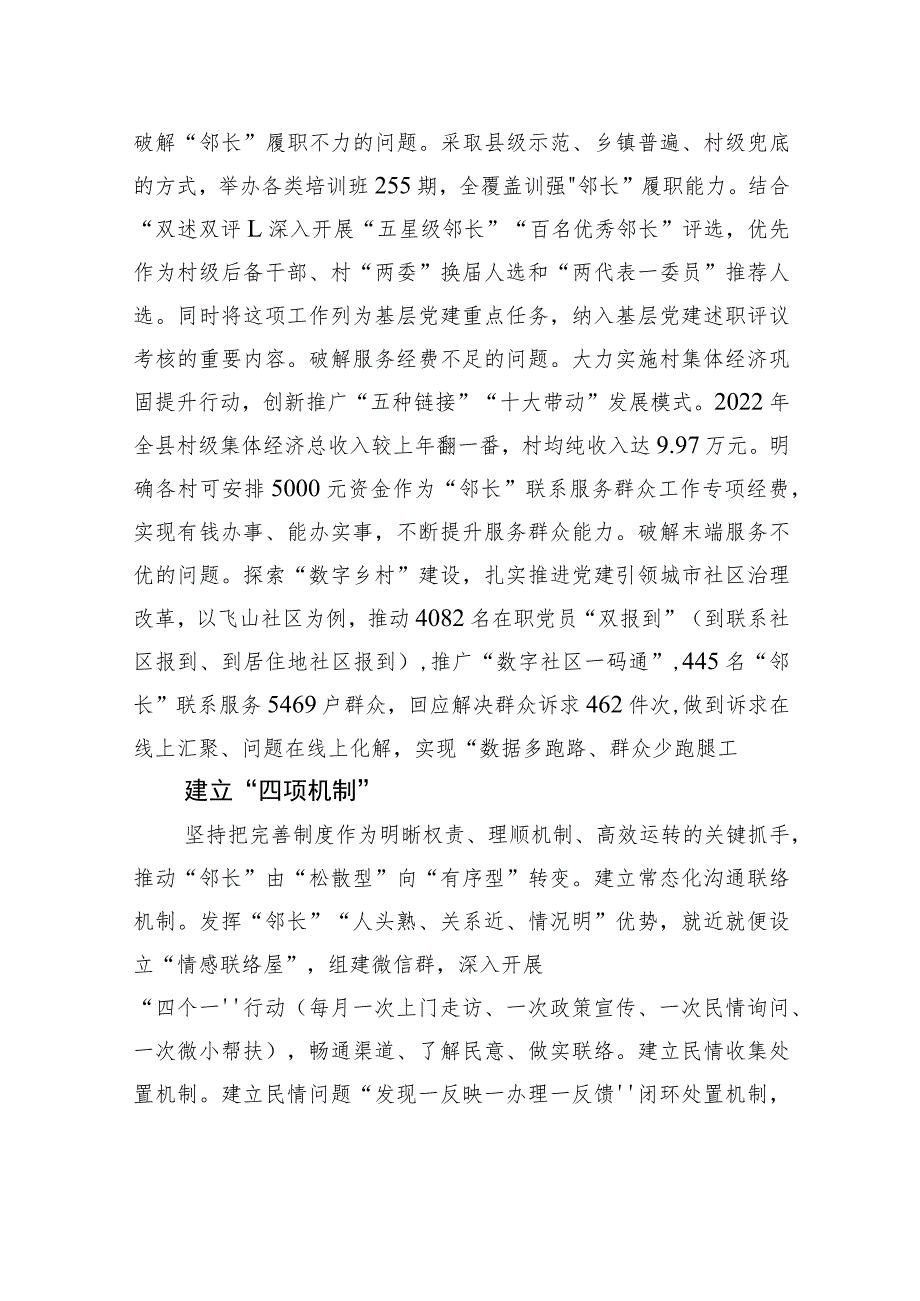 破解“邻长”履职不力的问题。采取县级示范、乡镇普遍、村级兜底
的方式，举办各类培训班 255 期，全覆盖训强"邻长”履职能力。结合
“双述双评 L 深入开展“五星级邻长”“百名优秀邻长”评选，优先
作为村级后备干部、村“两委”换届人选和“两代表一委员”推荐人
选。同时将这项工作列为基层党建重点任务，纳入基层党建述职评议
考核的重要内容。破解服务经费不足的问题。大力实施村集体经济巩
固提升行动，创新推广“五种链接”“十大带动”发展模式。2022 年
全县村级集体经济总收入较上年翻一番，村均纯收入达 9.97 万元。明
确各村可安排 5000 元资金作为“邻长”联系服务群众工作专项经费，
实现有钱办事、能办实事，不断提升服务群众能力。破解末端服务不
优的问题。探索“数字乡村”建设，扎实推进党建引领城市社区治理
改革，以飞山社区为例，推动 4082 名在职党员“双报到”（到联系社
区报到、到居住地社区报到）,推广“数字社区一码通”,445 名“邻
长”联系服务 5469 户群众，回应解决群众诉求 462 件次,做到诉求在
线上汇聚、问题在线上化解，实现“数据多跑路、群众少跑腿工
建立“四项机制”
坚持把完善制度作为明晰权责、理顺机制、高效运转的关键抓手，
推动“邻长”由“松散型”向“有序型”转变。建立常态化沟通联络
机制。发挥“邻长”“人头熟、关系近、情况明”优势，就近就便设
立“情感联络屋”，组建微信群，深入开展
“四个一''行动（每月一次上门走访、一次政策宣传、一次民情询问、
一次微小帮扶），畅通渠道、了解民意、做实联络。建立民情收集处
置机制。建立民情问题“发现一反映一办理一反馈''闭环处置机制，